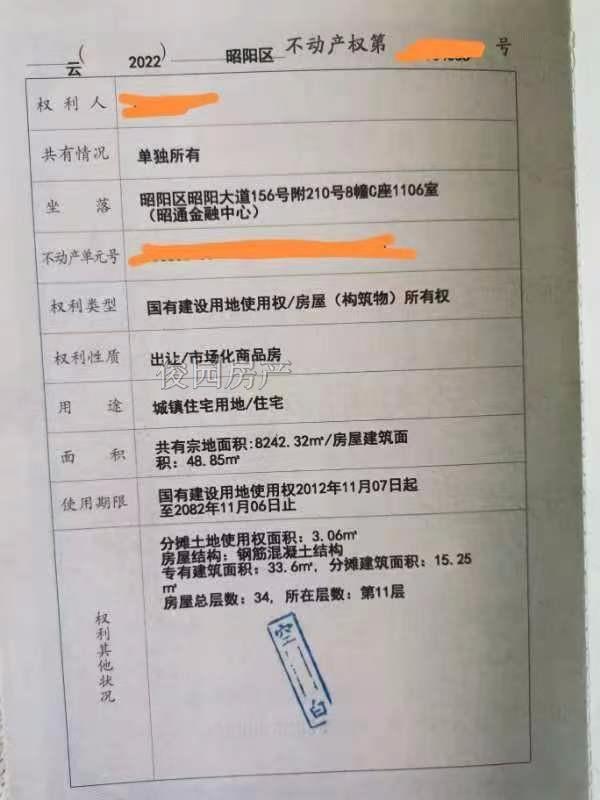 云( 2022) 昭阳区 不动产权第 号
权利人
共有情况 单独所有
坐落 昭阳区昭阳大道156号附210号8幢C座1106室
(昭通金融中心)
不动产单元号
权利类型 国有建设用地使用权/房屋(构筑物)所有权
权利性质 出让/市场化商品房
俊园房产
用途 城镇住宅用地/住宅
面积 共有宗地面积:8242.32㎡/房屋建筑面
积:48.85㎡
使用期限 国有建设用地使用权2012年11月07日起
至2082年11月06日止
权利其他状况
分摊土地使用权面积:3.06㎡
房屋结构:钢筋混凝土结构
专有建筑面积:33.6㎡,分摊建筑面积:15.25
㎡
房屋总层数:34,所在层数:第11层
空白